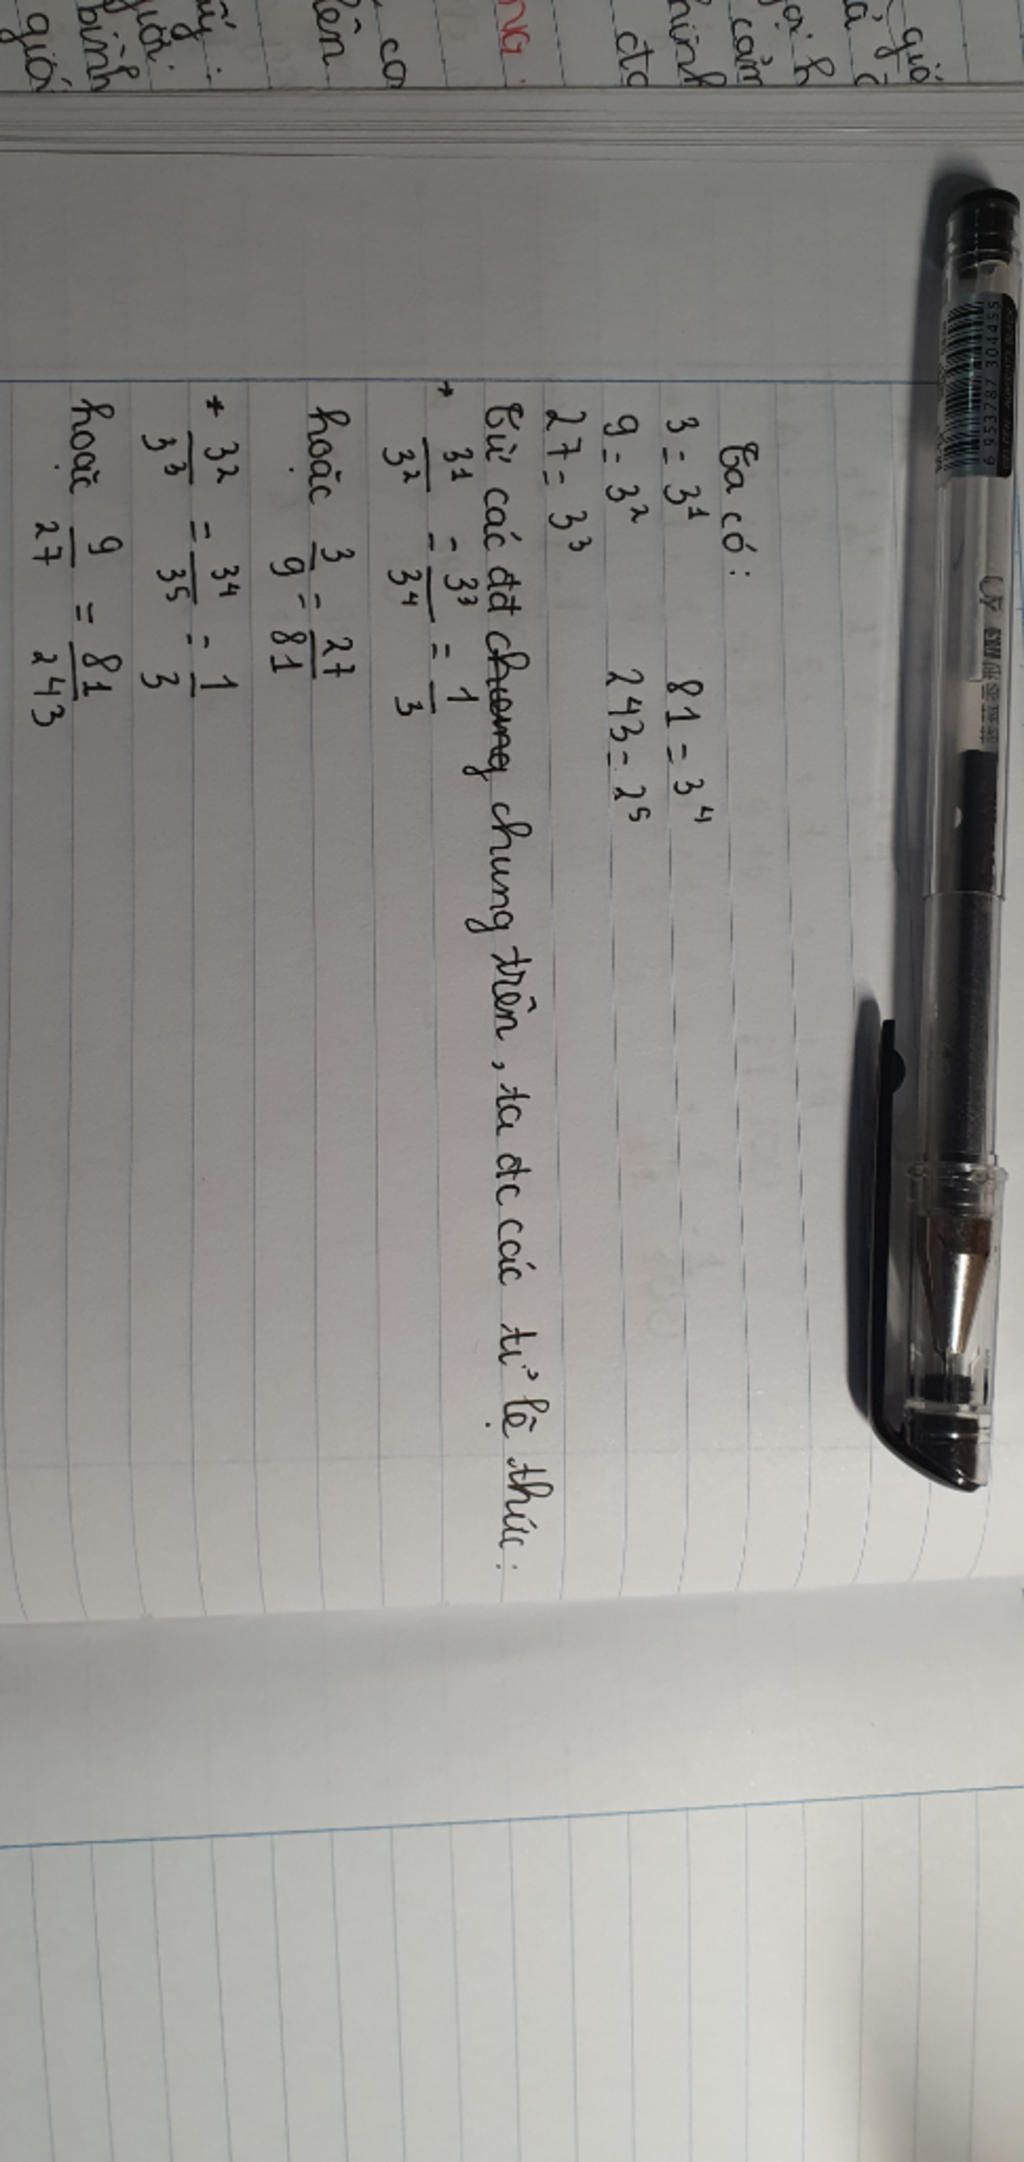 Ta có:
3 = 3¹ 81 = 3⁴
9 = 3² 243 = 2⁵
27 = 3³
Từ các đđ chung trên, ta đc các tỉ lệ thức:
* 3¹/3² = 3³/3⁴ = 1/3
hoặc 3/9 = 27/81
* 3²/3³ = 3⁴/3⁵ = 1/3
hoặc 9/27 = 81/243
6 953787 304455